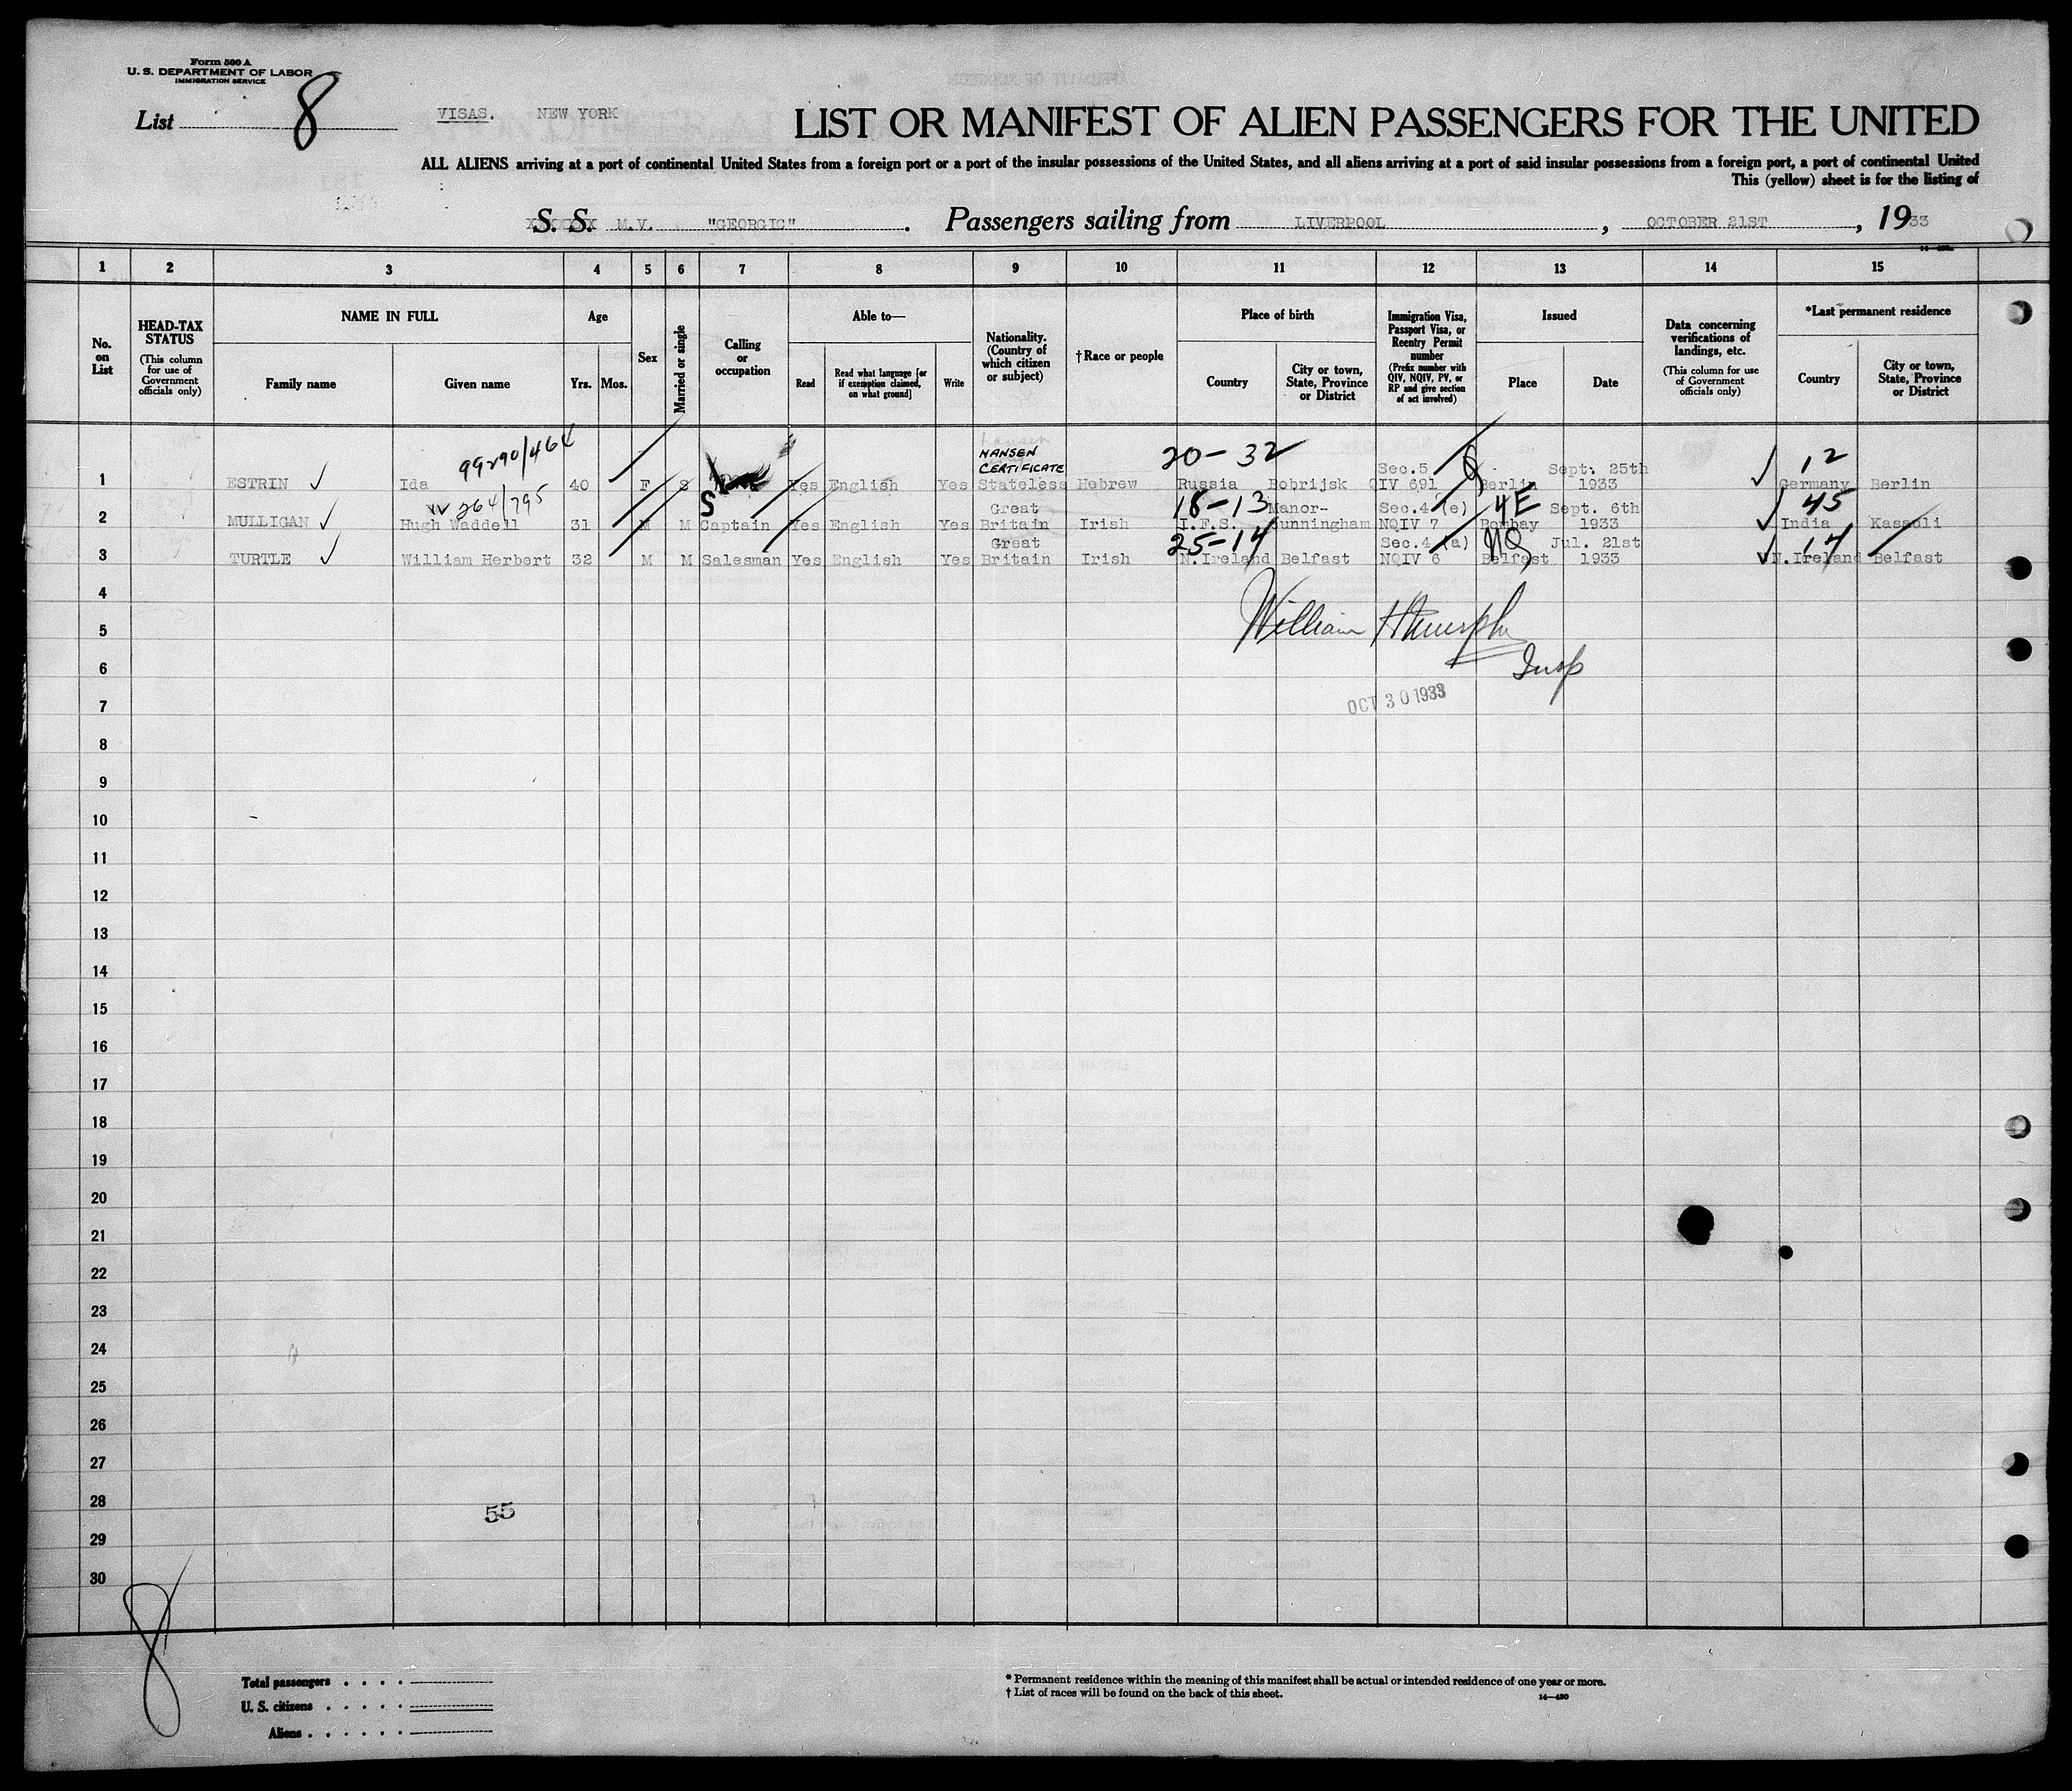 Form 500 A
U. S. DEPARTMENT OF LABOR
IMMIGRATION SERVICE
List 8
VISAS. NEW YORK
LIST OR MANIFEST OF ALIEN PASSENGERS FOR THE UNITED
ALL ALIENS arriving at a port of continental United States from a foreign port or a port of the insular possessions of the United States, and all aliens arriving at a port of said insular possessions from a foreign port, a port of continental United
This (yellow) sheet is for the listing of
S. S. M.V. "GEORGIC". Passengers sailing from LIVERPOOL, OCTOBER 21ST, 1933
1 2 3 4 5 6 7 8 9 10 11 12 13 14 15
No. on List
HEAD-TAX STATUS
(This column for use of Government officials only)
NAME IN FULL
Family name
Given name
Age
Yrs. Mos.
Sex
Married or single
Calling or occupation
Able to—
Read
Read what language [or if exemption claimed, on what ground]
Write
Nationality. (Country of which citizen or subject)
†Race or people
Place of birth
Country
City or town, State, Province or District
Immigration Visa, Passport Visa, or Reentry Permit number
(Prefix number with QIV, NQIV, PV, or RP and give section of act involved)
Issued
Place
Date
Data concerning verifications of landings, etc.
(This column for use of Government officials only)
*Last permanent residence
Country
City or town, State, Province or District
99290/464 NANSEN CERTIFICATE 20-32 Sec.5 Sept. 25th 12
1 ESTRIN ✓ Ida 40 F S Yes English Yes Stateless Hebrew Russia Bobrijsk QIV 691 Berlin 1933 ✓ Germany Berlin
264/795 S Great 18-13 Manor- Sec.4 (e) 4E Sept. 6th 45
2 MULLIGAN ✓ Hugh Waddell 31 M M Captain Yes English Yes Britain Irish I.F.S. Cunningham NQIV 7 Bombay 1933 ✓ India Kassuli
Great 25-14 Sec.4 (a) NQ Jul. 21st 14
3 TURTLE ✓ William Herbert 32 M M Salesman Yes English Yes Britain Irish N.Ireland Belfast NQIV 6 Belfast 1933 ✓ N.Ireland Belfast
4
5
William H Murphy
6
Insp
7
OCT 30 1933
8
9
10
11
12
13
14
15
16
17
18
19
20
21
22
23
24
25
26
27
28
55
29
30
8
Total passengers
U. S. citizens
Aliens
* Permanent residence within the meaning of this manifest shall be actual or intended residence of one year or more.
† List of races will be found on the back of this sheet.
14—430